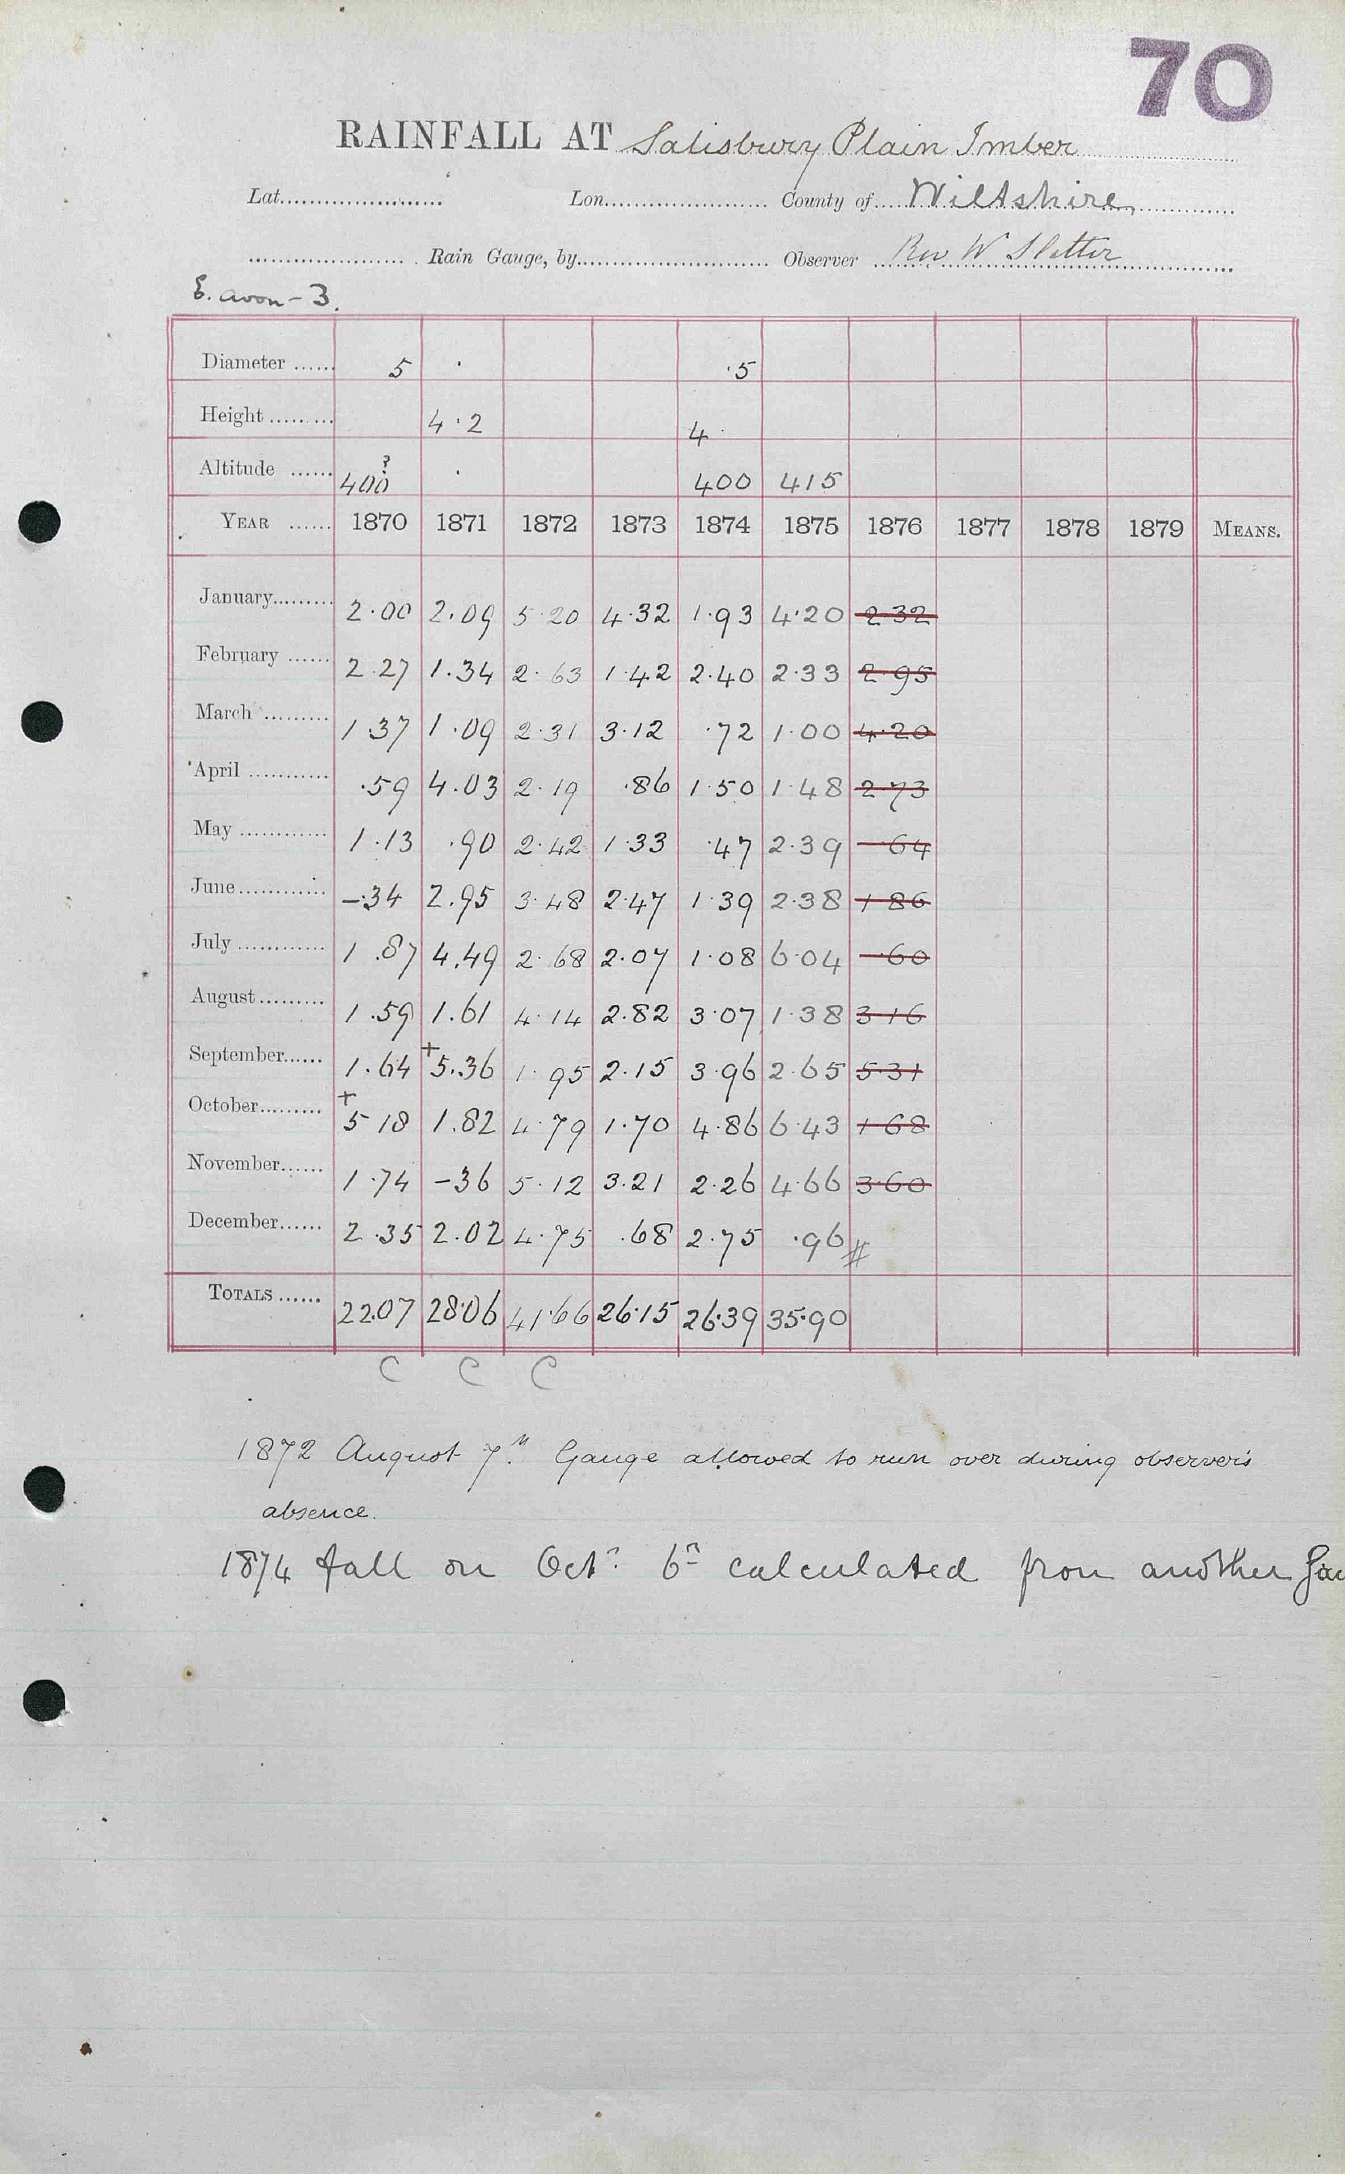 70
RAINFALL AT Salisbury Plain Imber
Lat. Lon. County of Wiltshire
Rain Gauge, by Observer Rev W Sletter
E. avon - 3.
Diameter 5 . .5
Height 4.2 4.
Altitude 400? . 400 415
YEAR 1870 1871 1872 1873 1874 1875 1876 1877 1878 1879 MEANS.
January 2.00 2.09 5.20 4.32 1.93 4.20 2.32
February 2.27 1.34 2.63 1.42 2.40 2.33 2.95
March 1.37 1.09 2.31 3.12 .72 1.00 4.20
April .59 4.03 2.19 .86 1.50 1.48 2.73
May 1.13 .90 2.42 1.33 .47 2.39 .64
June -.34 2.95 3.48 2.47 1.39 2.38 1.86
July 1.87 4.49 2.68 2.07 1.08 6.04 .60
August 1.59 1.61 4.14 2.82 3.07 1.38 3.16
September 1.64 +5.36 1.95 2.15 3.96 2.65 5.31
October +5.18 1.82 4.79 1.70 4.86 6.43 1.68
November 1.74 -36 5.12 3.21 2.26 4.66 3.60
December 2.35 2.02 4.75 .68 2.75 .96 #
TOTALS 22.07 28.06 41.66 26.15 26.39 35.90
C C C
1872 August 7th Gauge allowed to run over during observer's
absence.
1874 fall on Octr. 6th calculated from another Gau